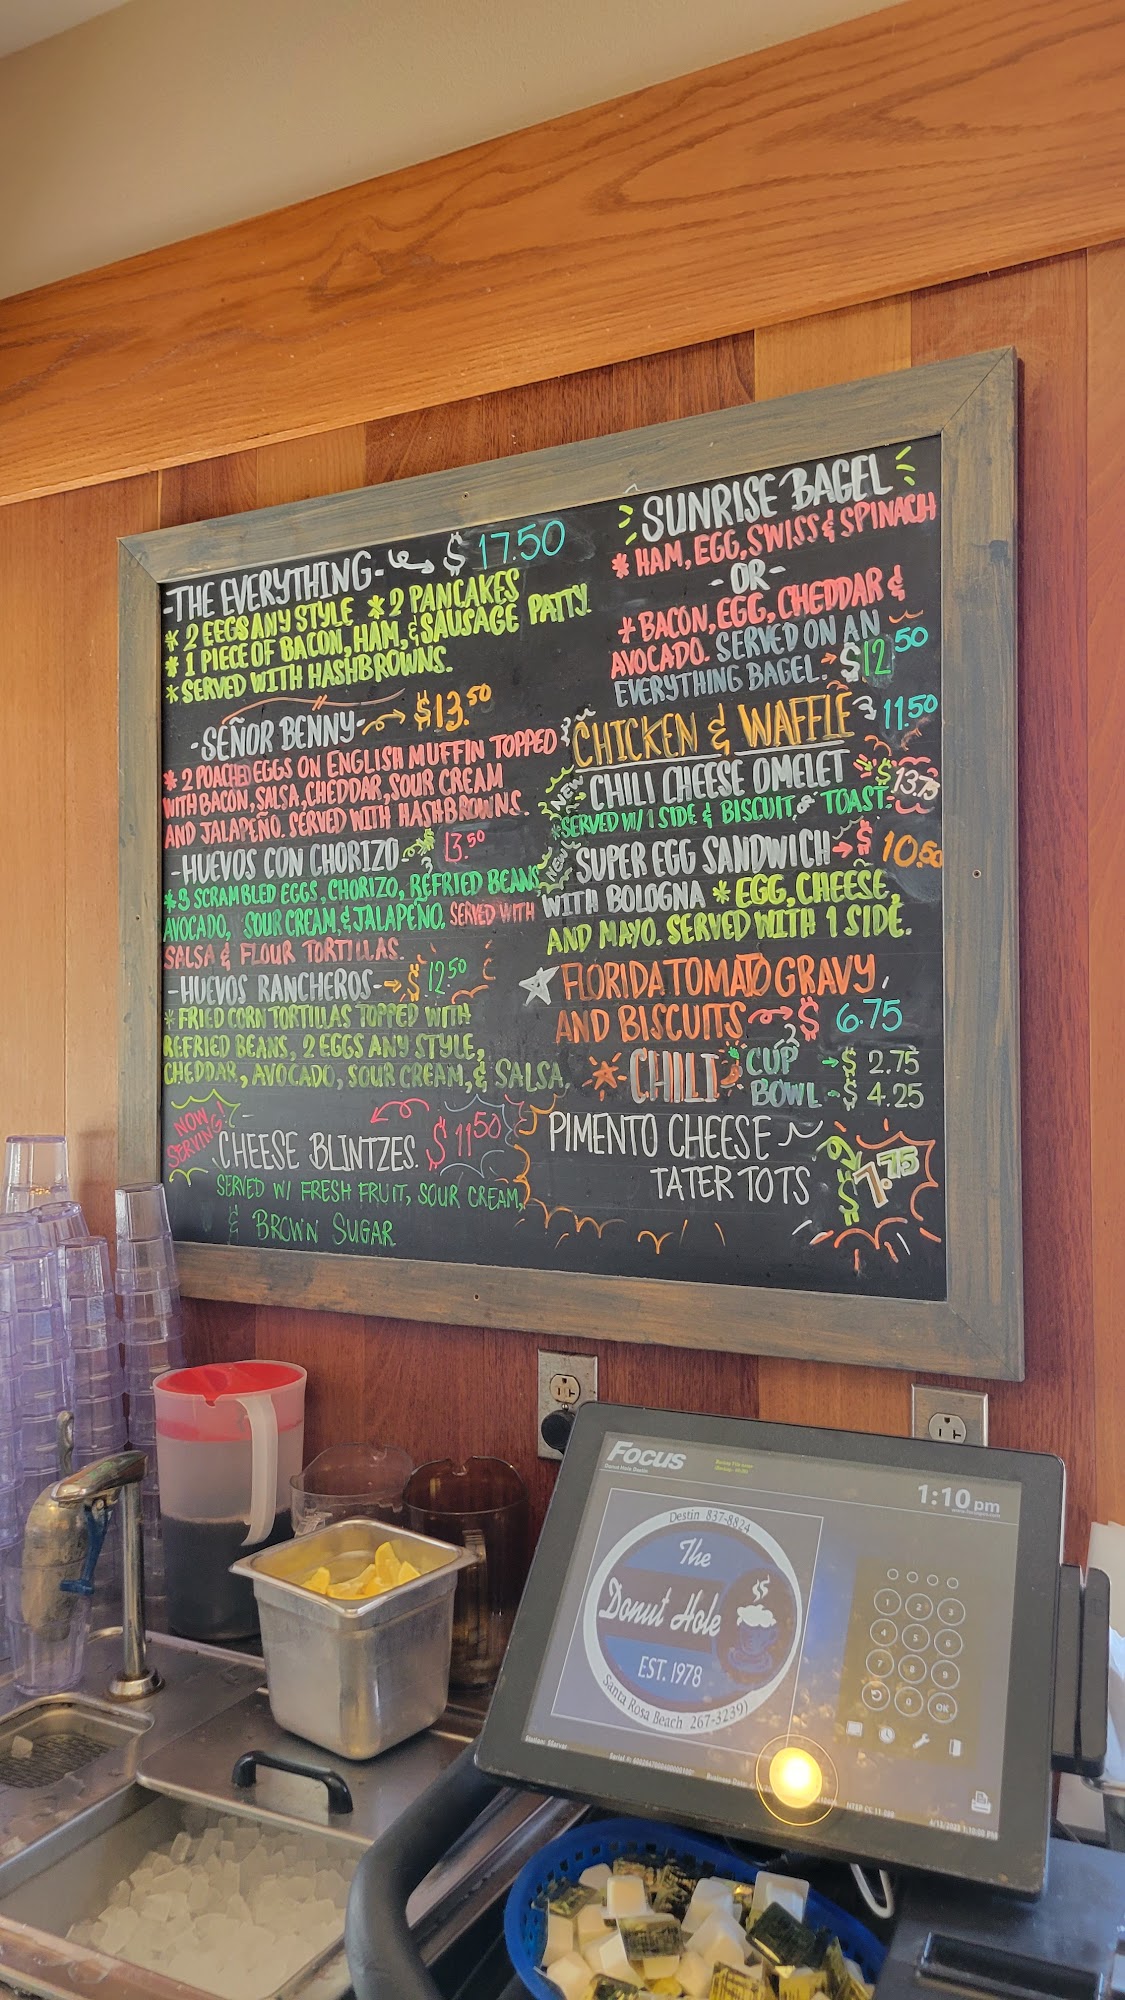 -THE EVERYTHING- $17.50
* 2 EEGS ANY STYLE * 2 PANCAKES
* 1 PIECE OF BACON, HAM, & SAUSAGE PATTY.
* SERVED WITH HASHBROWNS.
-SEÑOR BENNY- $13.50
* 2 POACHED EGGS ON ENGLISH MUFFIN TOPPED
WITH BACON, SALSA, CHEDDAR, SOUR CREAM
AND JALAPEÑO. SERVED WITH HASHBROWNS.
-HUEVOS CON CHORIZO- $13.50
* 3 SCRAMBLED EGGS, CHORIZO, REFRIED BEANS
AVOCADO, SOUR CREAM, & JALAPEÑO. SERVED WITH
SALSA & FLOUR TORTILLAS.
-HUEVOS RANCHEROS- $12.50
* FRIED CORN TORTILLAS TOPPED WITH
REFRIED BEANS, 2 EGGS ANY STYLE,
CHEDDAR, AVOCADO, SOUR CREAM, & SALSA.
NOW SERVING!
CHEESE BLINTZES. $11.50
SERVED W/ FRESH FRUIT, SOUR CREAM,
& BROWN SUGAR
SUNRISE BAGEL
* HAM, EGG, SWISS & SPINACH
-OR-
* BACON, EGG, CHEDDAR &
AVOCADO. SERVED ON AN
EVERYTHING BAGEL. $12.50
CHICKEN & WAFFLE 11.50
NEW CHILI CHEESE OMELET $13.75
* SERVED W/ 1 SIDE & BISCUIT or TOAST.
NEW SUPER EGG SANDWICH $10.50
WITH BOLOGNA * EGG, CHEESE,
AND MAYO. SERVED WITH 1 SIDE.
FLORIDA TOMATO GRAVY
AND BISCUITS $6.75
* CHILI CUP $2.75
BOWL $4.25
PIMENTO CHEESE
TATER TOTS 7.75
Focus
Donut Hole Destin
1:10 pm
Destin 837-8824
The
Donut Hole
EST. 1978
Santa Rosa Beach 267-3239
1 2 3
4 5 6
7 8 9
0 OK